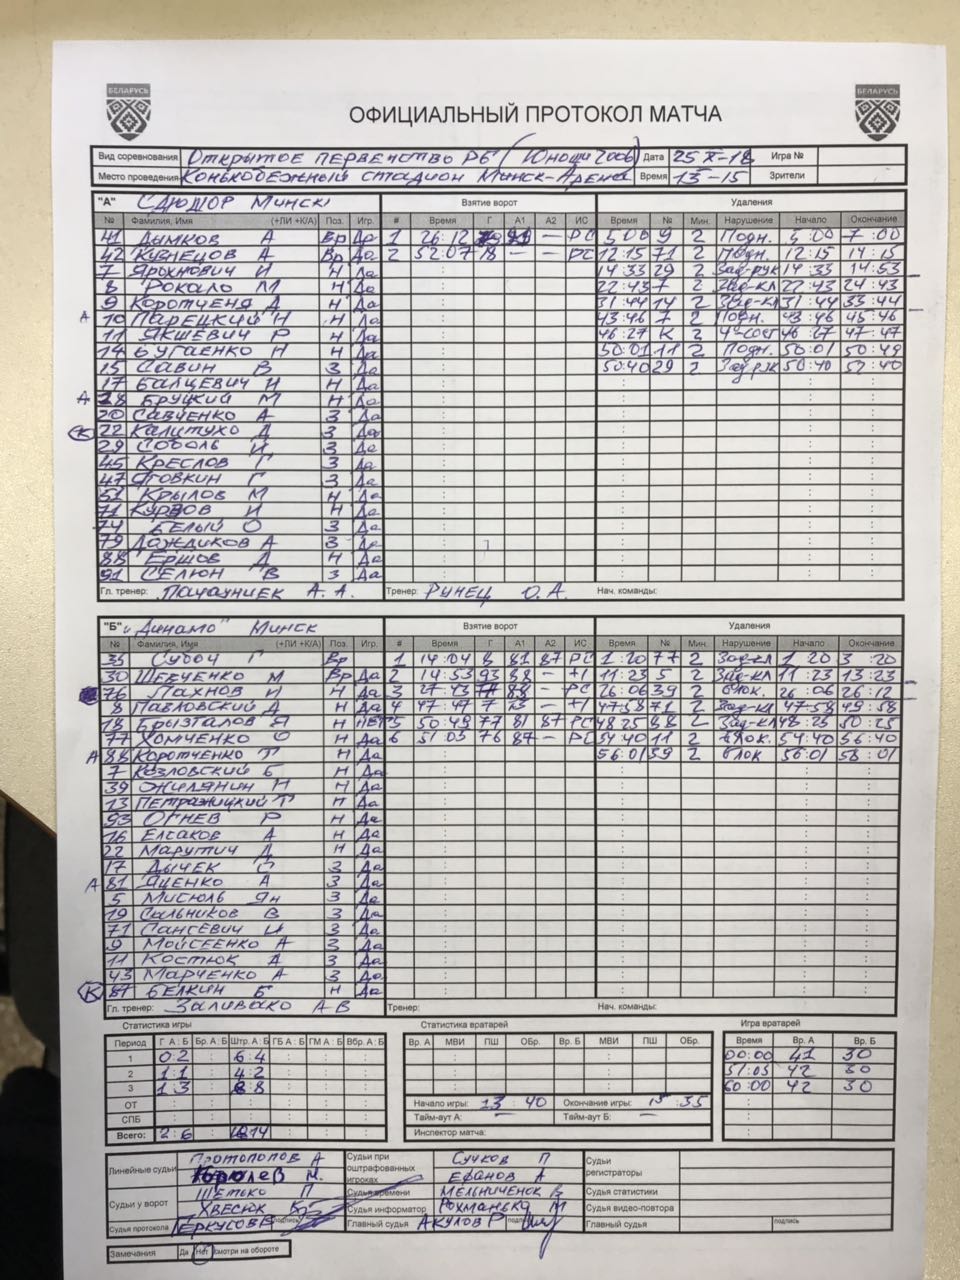 БЕЛАРУСЬ БЕЛАРУСЬ
ОФИЦИАЛЬНЫЙ ПРОТОКОЛ МАТЧА
Вид соревнования Открытое первенство РБ (Юноши 2006) Дата 25 X-18 Игра №
Место проведения Конькобежный стадион Минск-Арена Время 13-15 Зрители
"А" СДЮШОР Минск Взятие ворот Удаления
№ Фамилия, Имя (+ПИ +К/А) Поз. Игр. # Время Г А1 А2 ИС Время № Мин. Нарушение Начало Окончание
41 Дымков А Вр Да 1 26:12 — РС 5:00 9 2 Подн. 5:00 7:00
42 Кузнецов А Вр Да 2 52:07 18 — — РС 12:15 71 2 Подн. 12:15 14:15
7 Ярохнович И Н Да 14:33 29 2 Зад-рук 14:33 14:53
8 Рокало М Н Да 22:43 7 2 Зад-кл 22:43 24:43
9 Коротченя Д Н Да 31:44 14 2 Зад-кл 31:44 33:44
А 10 Парецкий Н Н Да 43:46 7 2 Подн. 43:46 45:46
11 Якшевич Р Н Да 46:27 К 2 Ч-сост 46:27 47:47
14 Бугаенко Н Н Да 50:01 11 2 Подн. 50:01 50:49
15 Савин В З Да 50:40 29 2 Зад рук 50:40 52:40
17 Балцевич И Н Да
А 18 Бруцкий М Н Да
20 Савченко А З Да
К 22 Калитухо Д З Да
29 Соболь И З Да
45 Креслов Г З Да
47 Яговкин Г З Да
51 Крылов М Н Да
71 И Н Да
74 Белый О З Да
79 Дождиков А З Да
88 Ершов Д Н Да
91 Селюн В З Да
Гл. тренер: А. А. Тренер: Рунец О.А. Нач. команды:
"Б" «Динамо» Минск Взятие ворот Удаления
№ Фамилия, Имя (+ПИ +К/А) Поз. Игр. # Время Г А1 А2 ИС Время № Мин. Нарушение Начало Окончание
35 Субоч Г Вр 1 14:04 8 81 87 РС 1:20 77 2 Зад-кл 1:20 3:20
30 Шевченко М Вр Да 2 14:53 93 88 — +1 11:23 5 2 Зад-кл 11:23 13:23
76 Пахнов И Н Да 3 27:43 77 88 — РС 26:06 39 2 Блок. 26:06 26:12
8 Павловский Д Н Да 4 47:47 7 13 — +1 47:58 71 2 Зад-кл 47:58 49:58
18 Брызгалов Я Н Нет 5 50:49 77 81 87 РС 48:25 88 2 Зад-кл 48:25 50:25
77 Хомченко О Н Да 6 51:05 76 87 — РС 54:40 11 2 Блок. 54:40 56:40
А 88 Коротченко Т Н Да 56:01 59 2 блок 56:01 58:01
7 Козловский Б Н Да
39 Жилянин Н Н Да
13 Петражицкий Т Н Да
93 Огнев Р Н Да
16 Елсаков А Н Да
22 Марутич Д Н Да
17 Дычек С З Да
А 81 Яценко А З Да
5 Мисюль Ян З Да
19 Сальников В З Да
71 Сансевич И З Да
9 Мойсеенко А З Да
11 Костюк А З Да
43 Марченко А З Да
К 87 Белкин Б Н Да
Гл. тренер: Заливако А В Тренер: Нач. команды:
Статистика игры Статистика вратарей Игра вратарей
Период Г А : Б Бр. А : Б Штр. А : Б ГБ А : Б ГМ А : Б Вбр. А : Б Вр. А МВИ ПШ ОБр. Вр. Б МВИ ПШ ОБр. Время Вр. А Вр. Б
1 0:2 6:4 00:00 41 30
2 1:1 4:2 51:05 42 30
3 1:3 8:8 60:00 42 30
ОТ Начало игры: 13:40 Окончание игры: 15:35
СПБ Тайм-аут А: — Тайм-аут Б: —
Всего: 2:6 18:14 Инспектор матча:
Линейные судьи Протопопов А Судьи при оштрафованных игроках Сучков П Судьи регистраторы
Королев М. Ефанов А
Судьи у ворот Шетько П Судья времени Мельниченок В Судья статистики
Хвесюк Судья информатор Рохманько М Судья видео-повтора
Судья протокола Перкусов В подпись Главный судья Акулов Р подпись Главный судья подпись
Замечания Да Нет смотри на обороте